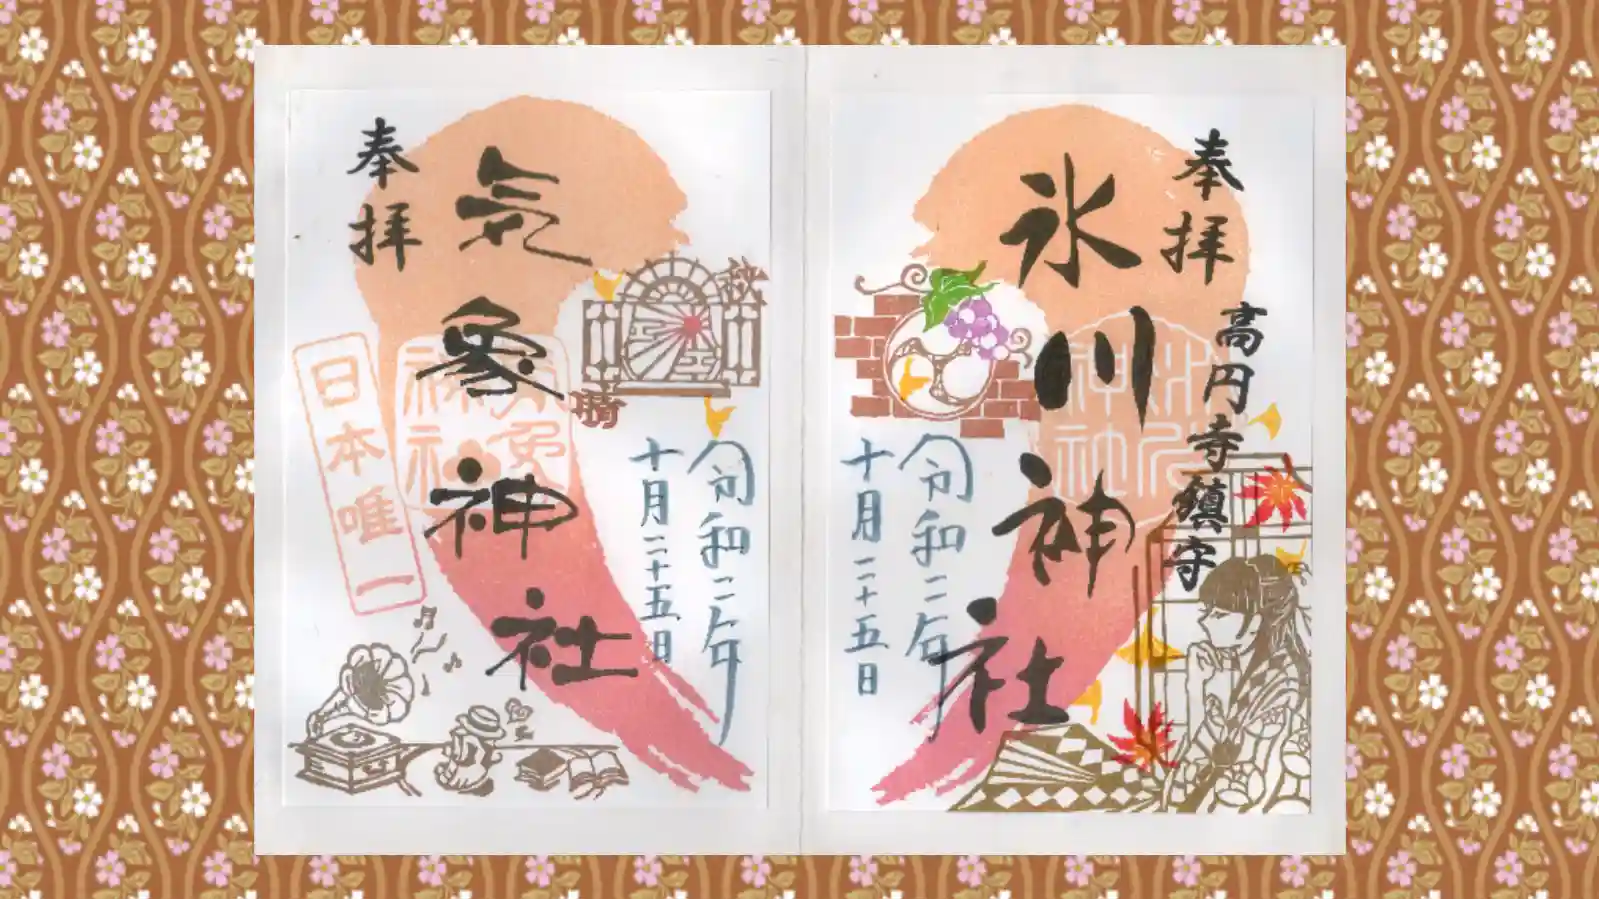 奉拝
高円寺鎮守
氷川神社
令和二年
十月二十五日
令和二年
十月二十五日
秋
晴
気象神社
奉拝
日本唯一